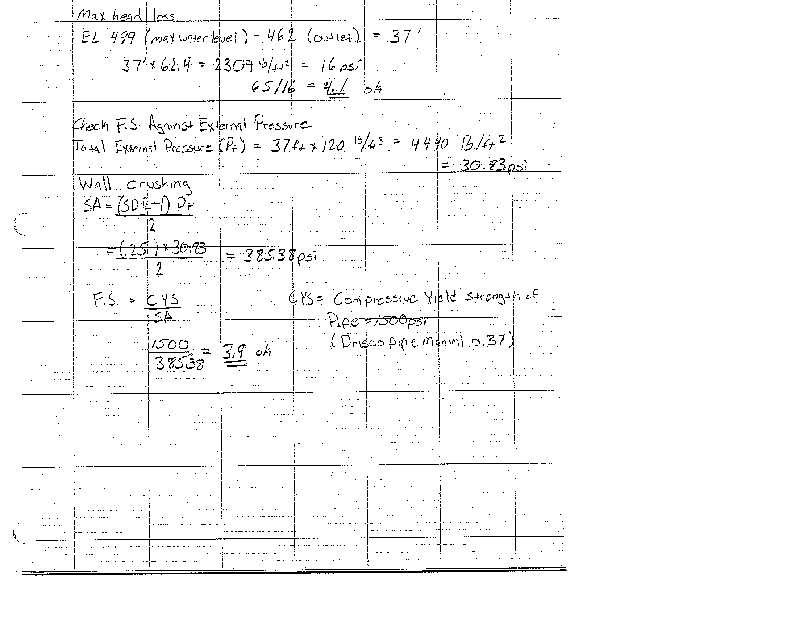 Max head loss
EL 499 (max water level) - 462 (outlet) = 37'
37' x 62.4 = 2309 lb/ft² = 16 psi
65/16 = 4.1 ok
Check F.S. Against External Pressure
Total External Pressure (PT) = 37ft x 120 lb/ft³ = 4440 lb/ft²
= 30.83psi
Wall crushing
SA = (SDR-1) PT
2
= (25) x 30.83 = 385.38psi
2
F.S. = CYS CYS = Compressive Yield Strength of
SA Pipe = 1500psi
1500 = 3.9 ok (Driscopipe Manual p.37)
385.38